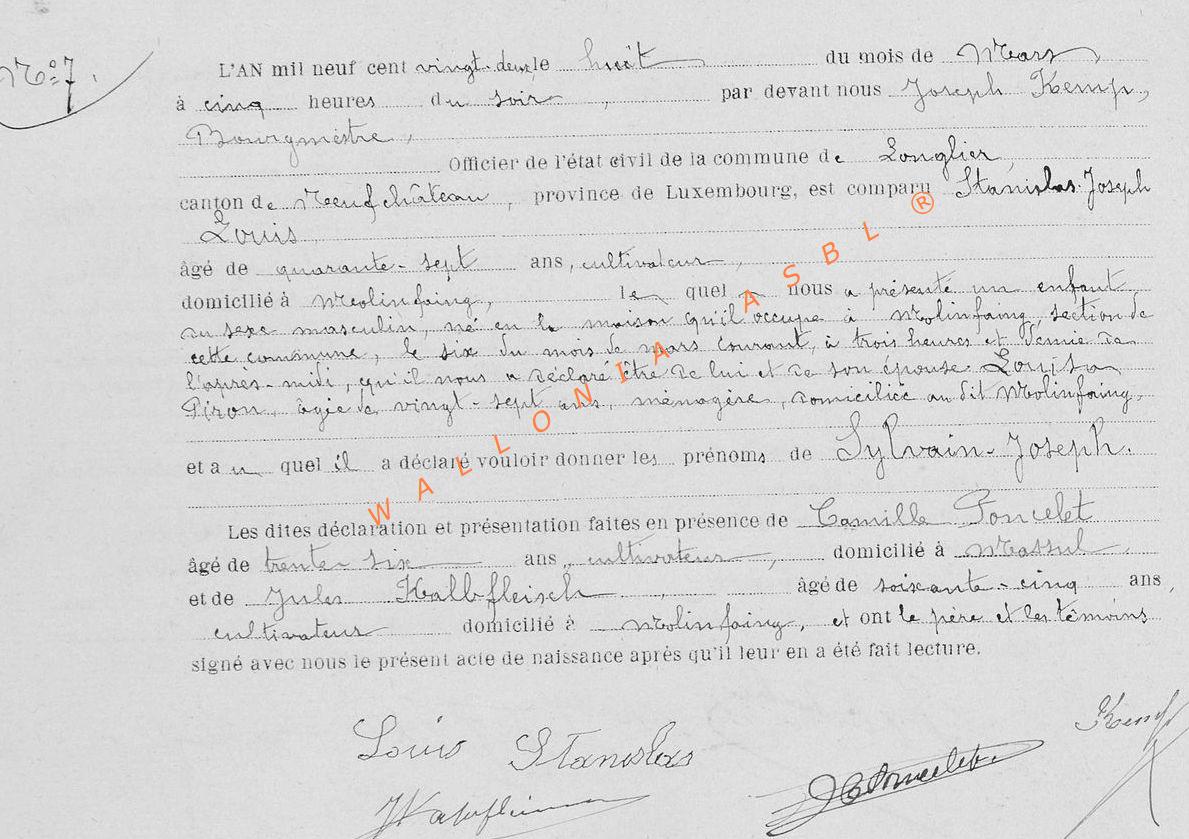 N° 7.
L'AN mil neuf cent vingt-deux, le huit du mois de Mars,
à cinq heures du soir, par devant nous Joseph Kemp,
Bourgmestre,
Officier de l'état civil de la commune de Longlier,
canton de Neufchâteau, province de Luxembourg, est comparu Stanislas-Joseph
Louis
âgé de quarante-sept ans, cultivateur,
domicilié à Molinfaing, le quel nous a présenté un enfant
du sexe masculin, né en la maison qu'il occupe à Molinfaing, section de
cette commune, le six du mois de mars courant, à trois heures et demie de
l'après-midi, qu'il nous a déclaré être de lui et de son épouse Louisa
Piron, âgée de vingt-sept ans, ménagère, domiciliée au dit Molinfaing,
et a u quel il a déclaré vouloir donner les prénoms de Sylvain-Joseph.
Les dites déclaration et présentation faites en présence de Camille Poncelet
âgé de trente six ans, cultivateur, domicilié à Massul,
et de Jules Kalbfleisch, âgé de soixante-cinq ans,
cultivateur domicilié à Molinfaing, et ont le père et les témoins
signé avec nous le présent acte de naissance après qu'il leur en a été fait lecture.
Louis Stanislas
Kemp
Poncelet
WALLONIA ASBL ®